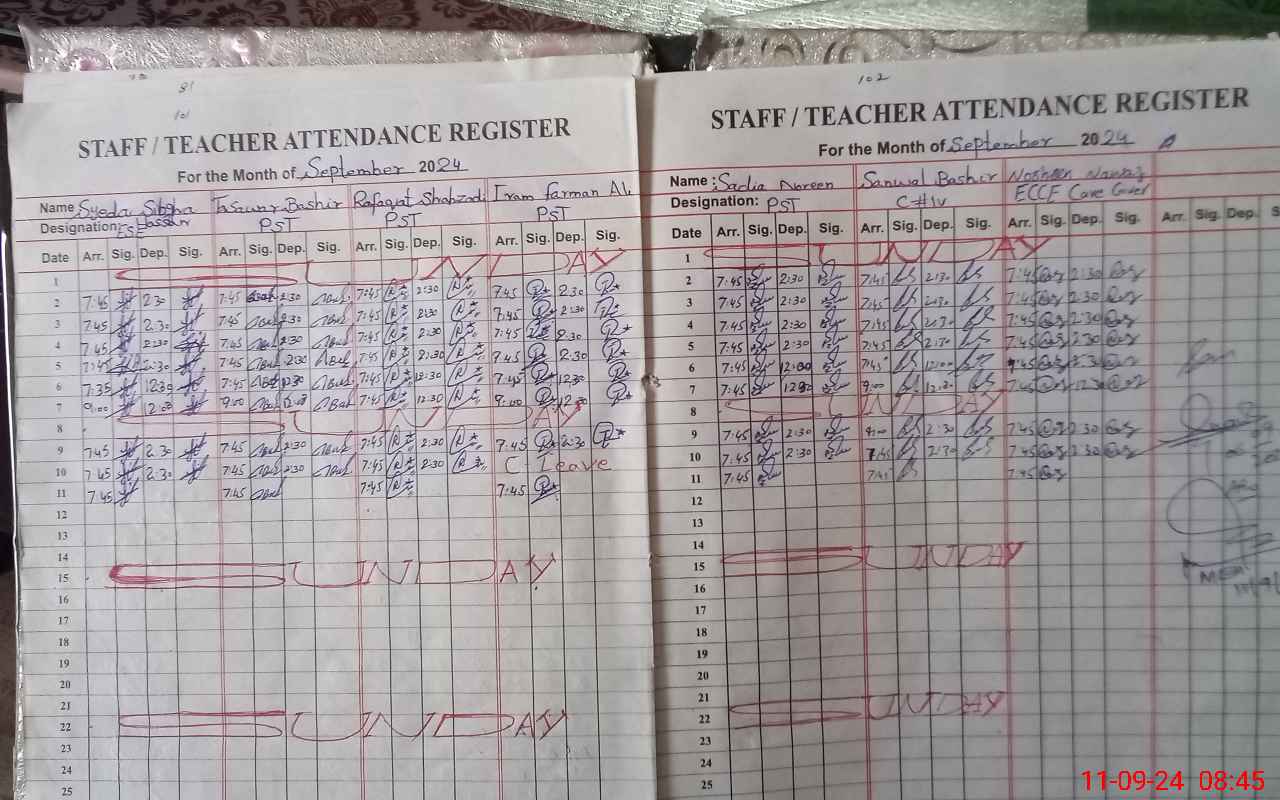 81
101
STAFF / TEACHER ATTENDANCE REGISTER
For the Month of September 2024
Name Syeda Sibgha Hassan Tasawar Bashir Rafaqat Shahzadi Iram Farman Ali
Designation: PST PST PST
Date Arr. Sig. Dep. Sig. Arr. Sig. Dep. Sig. Arr. Sig. Dep. Sig. Arr. Sig. Dep. Sig.
1 SUNDAY
2 7:45 2:30 7:45 2:30 7:45 2:30 7:45 2:30
3 7:45 2:30 7:45 2:30 7:45 2:30 7:45 2:30
4 7:45 2:30 7:45 2:30 7:45 2:30 7:45 2:30
5 7:45 2:30 7:45 2:30 7:45 2:30 7:45 2:30
6 7:35 12:30 7:45 12:30 7:45 12:30 7:45 12:30
7 9:00 12:00 9:00 12:00 7:45 12:30 9:00 12:30
8 SUNDAY
9 7:45 2:30 7:45 2:30 7:45 2:30 7:45 2:30
10 7:45 2:30 7:45 2:30 7:45 2:30 C Leave
11 7:45 7:45 7:45 7:45
12
13
14
15 SUNDAY
16
17
18
19
20
21
22 SUNDAY
23
24
25
102
STAFF / TEACHER ATTENDANCE REGISTER
For the Month of September 2024
Name : Sadia Noreen Sanwal Bashir Nosheen Nawaz
Designation: PST C#IV ECCE Care Giver
Date Arr. Sig. Dep. Sig. Arr. Sig. Dep. Sig. Arr. Sig. Dep. Sig. Arr. Sig. Dep.
1 SUNDAY
2 7:45 2:30 7:45 2:30 7:45 2:30
3 7:45 2:30 7:45 2:30 7:45 2:30
4 7:45 2:30 7:45 2:30 7:45 2:30
5 7:45 2:30 7:45 2:30 7:45 2:30
6 7:45 12:00 7:45 12:00
7 7:45 12:30 9:00 12:30 7:45 12:30
8 SUNDAY
9 7:45 2:30 9:00 2:30 7:45 2:30
10 7:45 2:30 7:45 2:30 7:45 2:30
11 7:45 7:45 7:45
12
13
14
15 SUNDAY
16
17
18
19
20
21
22 SUNDAY
23
24
25
11-09-24 08:45